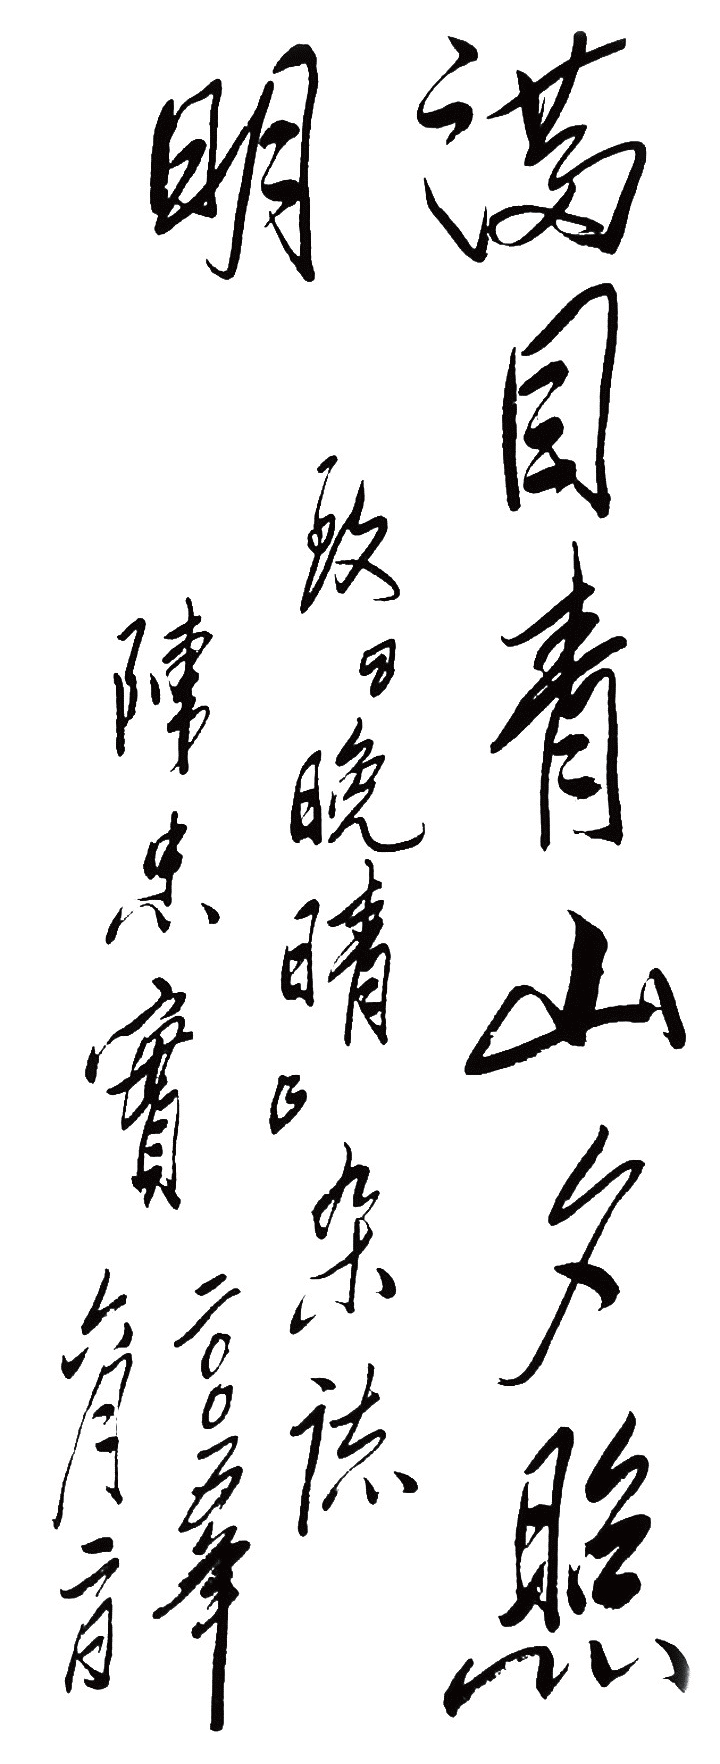 满目青山夕照
明
致『晚晴』杂誌
陳忠實
二〇〇五年
六月二日